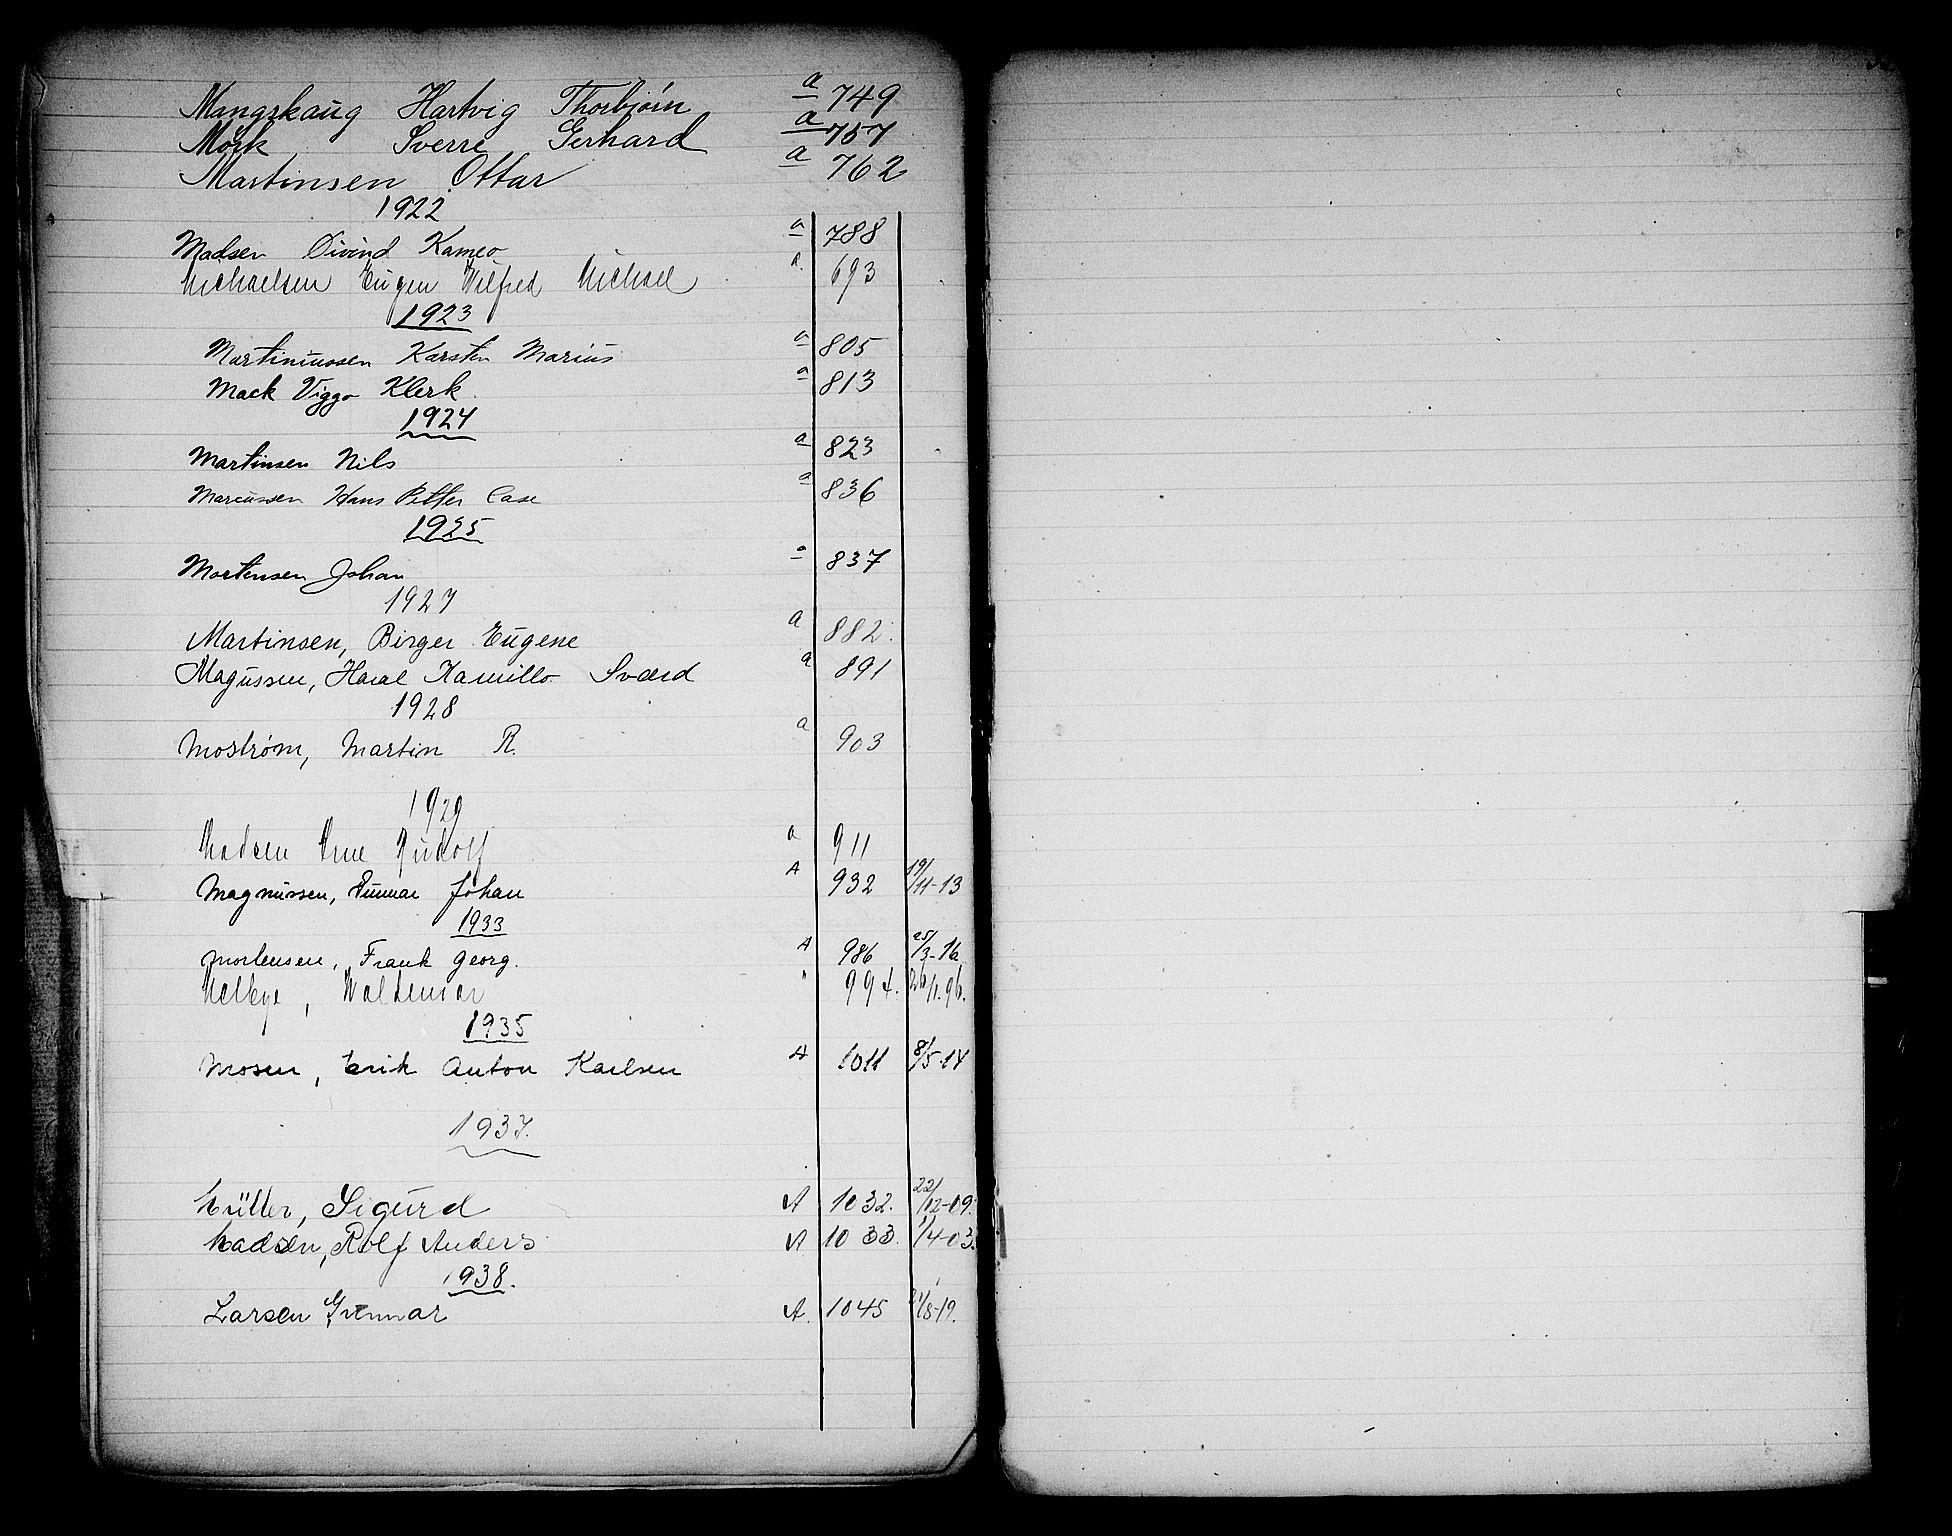 Mangskaug Hartvig Thorbjørn a 749
Mörk Sverre Gerhard a 757
Martinsen Ottar a 762
1922
Madsen Öivind Kameo a 788
Michaelsen Eugen Wilfred Michael a. 693
1923
Martiniussen Karsten Marius a 805
Mack Viggo Klerk a 813
1924
Martinsen Nils a 823
Marcussen Hans Petter Case a 836
1925
Mortensen Johan a 837
1927
Martinsen, Birger Eugene a 882.
Magussen, Haral Kamillo Sværd a 891
1928
Moström, Martin R. a 903
1929
Madsen Arne Rudolf a 911
Magnussen, Gunnar Johan A 932 19/11-13
1933
Mortensen, Frank Georg. A 986 25/3-16
Melbye, Waldemar " 994. 26/1.96.
1935
Mosen, Erik Anton Karlsen A 1011 8/5-14
1937.
Müller, Sigurd A 1032. 22/12-09.
Madsen, Rolf Anders A 1033. 1/4-03.
1938.
Larsen Gunnar A. 1045 /8-19.